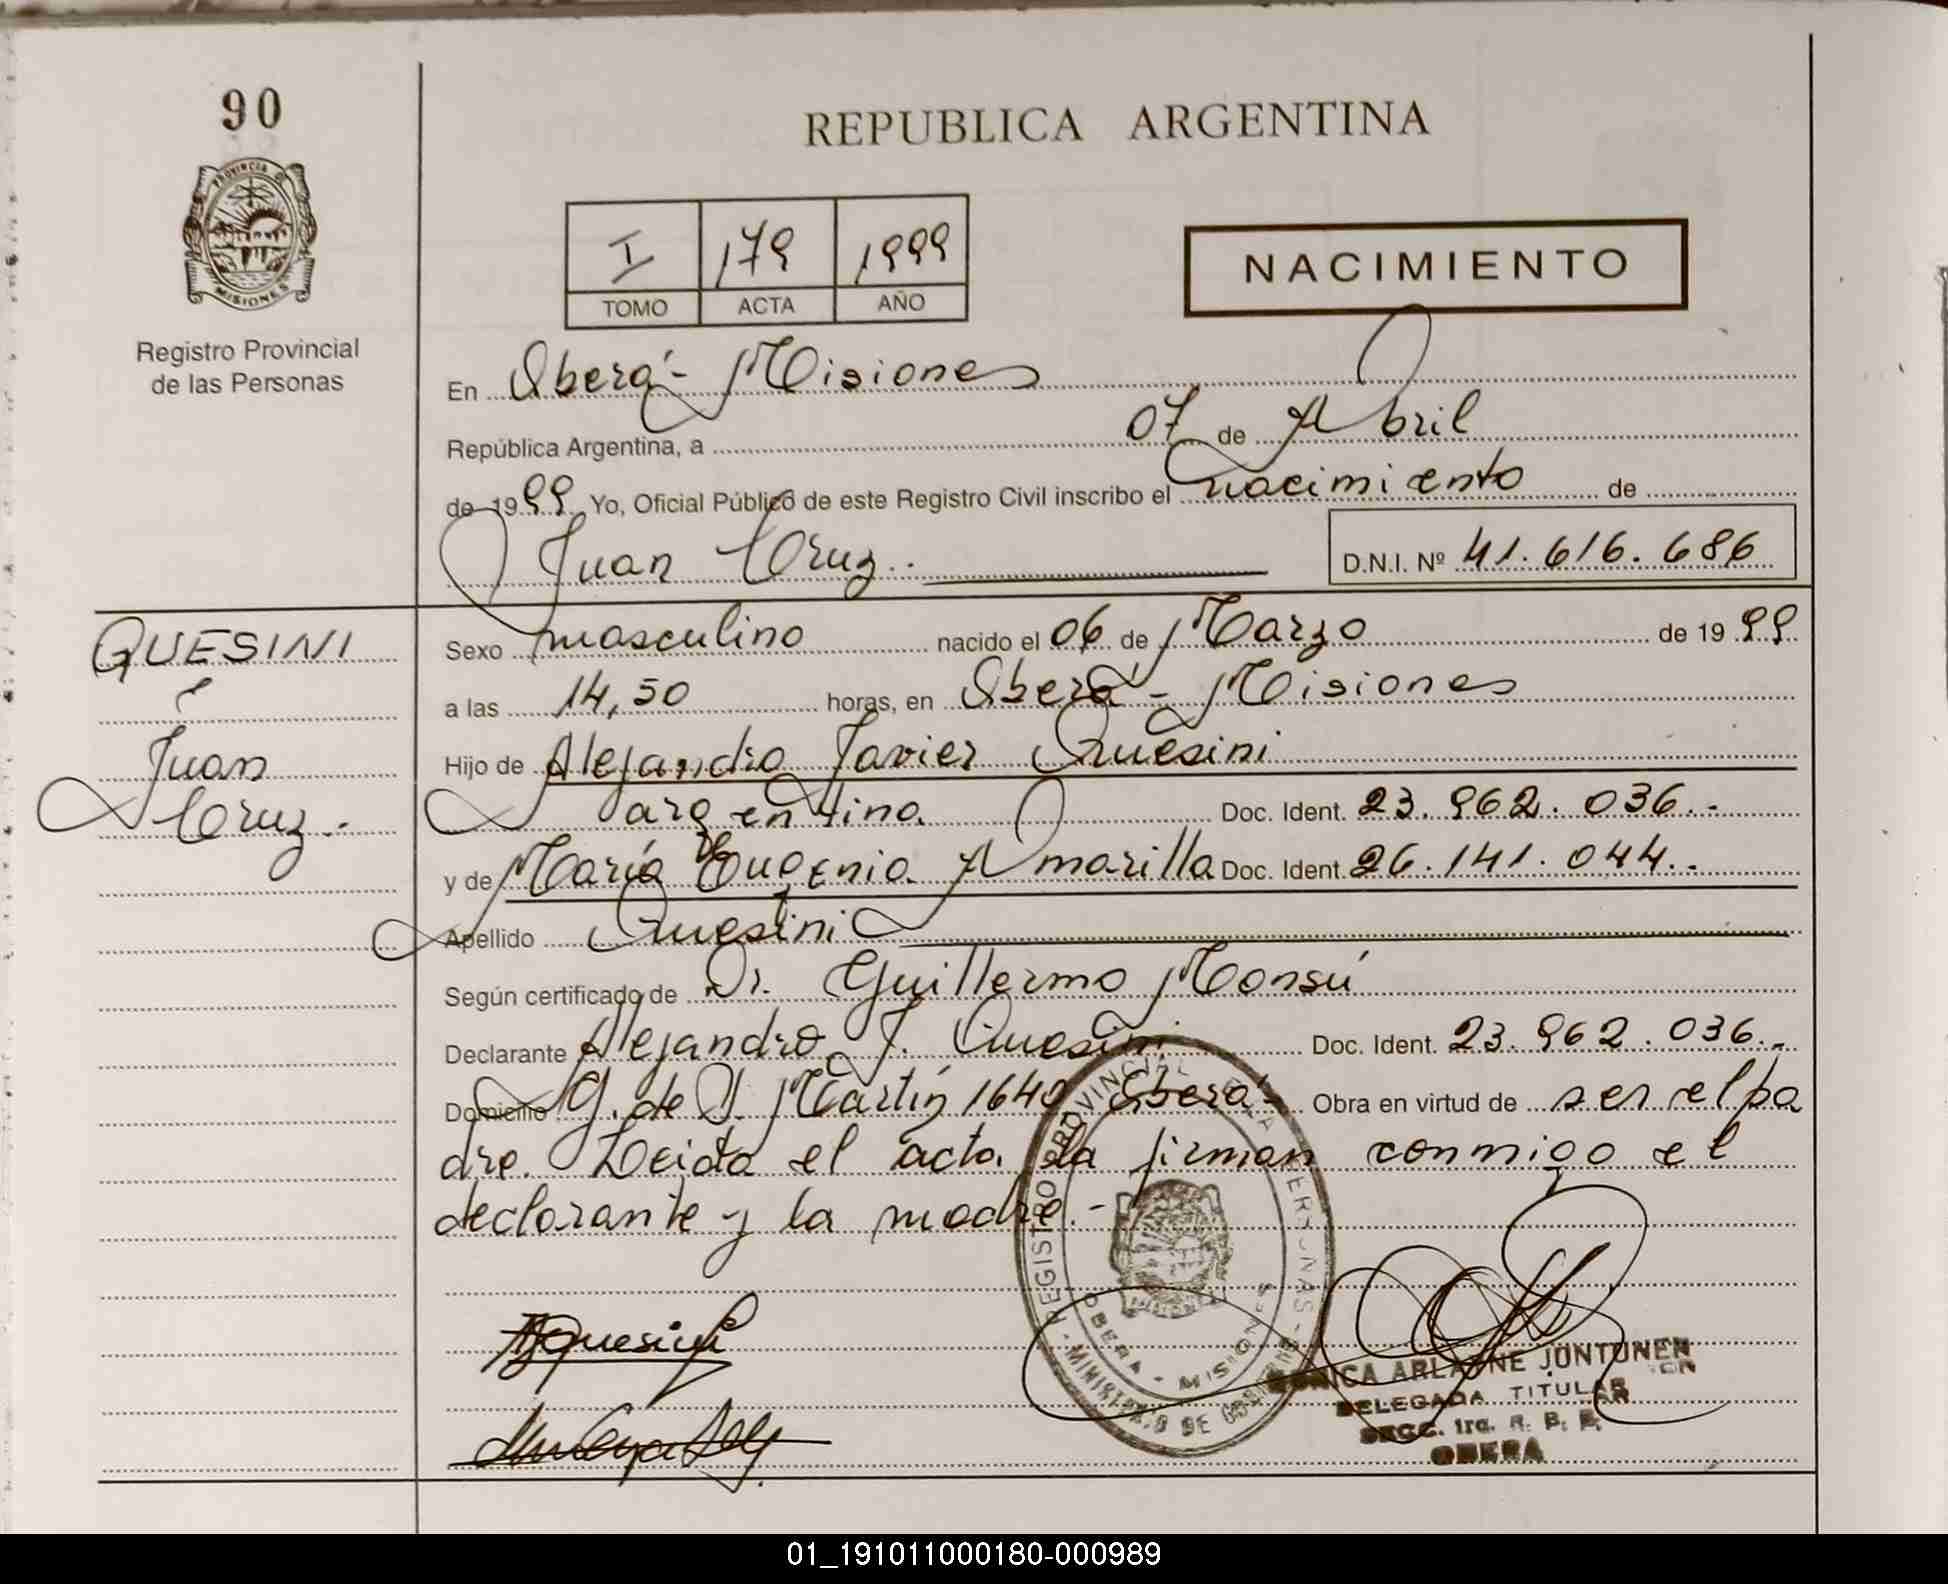 90
PROVINCIA DE
MISIONES
Registro Provincial
de las Personas
REPUBLICA ARGENTINA
I 179 1999
TOMO ACTA AÑO
NACIMIENTO
En Oberá - Misiones
República Argentina, a 07 de Abril
de 1999 Yo, Oficial Público de este Registro Civil inscribo el nacimiento de
Juan Cruz.
D.N.I. Nº 41.616.686
QUESINI
Juan
Cruz.-
Sexo masculino nacido el 06 de Marzo de 1999
a las 14,50 horas, en Oberá - Misiones
Hijo de Alejandro Javier Quesini
argentino. Doc. Ident. 23.962.036.-
y de María Eugenia Amarilla Doc. Ident. 26.141.044.-
Apellido Quesini
Según certificado de Dr. Guillermo Monsú
Declarante Alejandro J. Quesini Doc. Ident. 23.962.036.-
Domicilio G. de S. Martín 1640 Oberá- Obra en virtud de ser el pa
dre. Leida el acta la firman conmigo el
declarante y la madre.-
REGISTRO PROVINCIAL DE LAS PERSONAS
OBERA - MISIONES
MINISTERIO DE
AJQuesini
ARIADNE JONTUNEN
DELEGADA TITULAR
SECC. 1ra. R. P. P.
OBERA
01_191011000180-000989